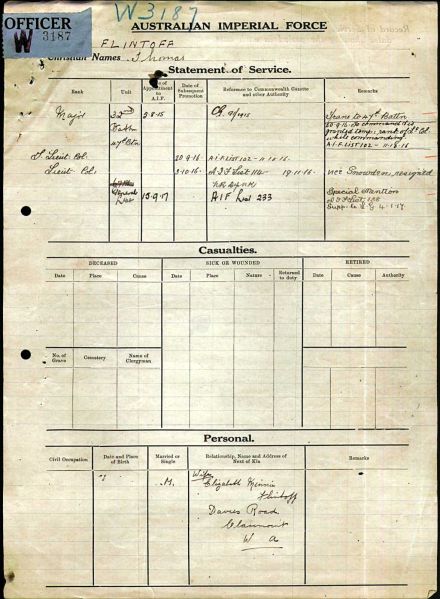 W3187
OFFICER
W 3187
AUSTRALIAN IMPERIAL FORCE
FLINTOFF
Christian Names Thomas
Statement of Service.
Rank
Unit
Date of Appointment to A.I.F.
Date of Subsequent Promotion
Reference to Commonwealth Gazette and other Authority
Remarks
Major 32nd 2-8-15 Trans to 47th Battn
Battn 20-9-16 To command &
47th Btn granted temp. rank of Lt Col.
while commanding
A.I.F LIST 102 - 11-10-16
T. Lieut Col. 20 9-16 A.I.F LIST 102 - 11-10-16
Lieut Col. 3-10-16 A I F List 114 18-11-16 vice Snowden, resigned
General List 15-9-17 AIF List 233 Special Mention
Supp. to L G 4-1-17
Casualties.
DECEASED
SICK OR WOUNDED
RETIRED
Date Place Cause
Date Place Nature Returned to duty
Date Cause Authority
No. of Grave
Cemetery
Name of Clergyman
Personal.
Civil Occupation
Date and Place of Birth
Married or Single
Relationship, Name and Address of Next of Kin
Remarks
M. Wife
Elizabeth Minnie
Flintoff
Davies Road
Claremont
W A